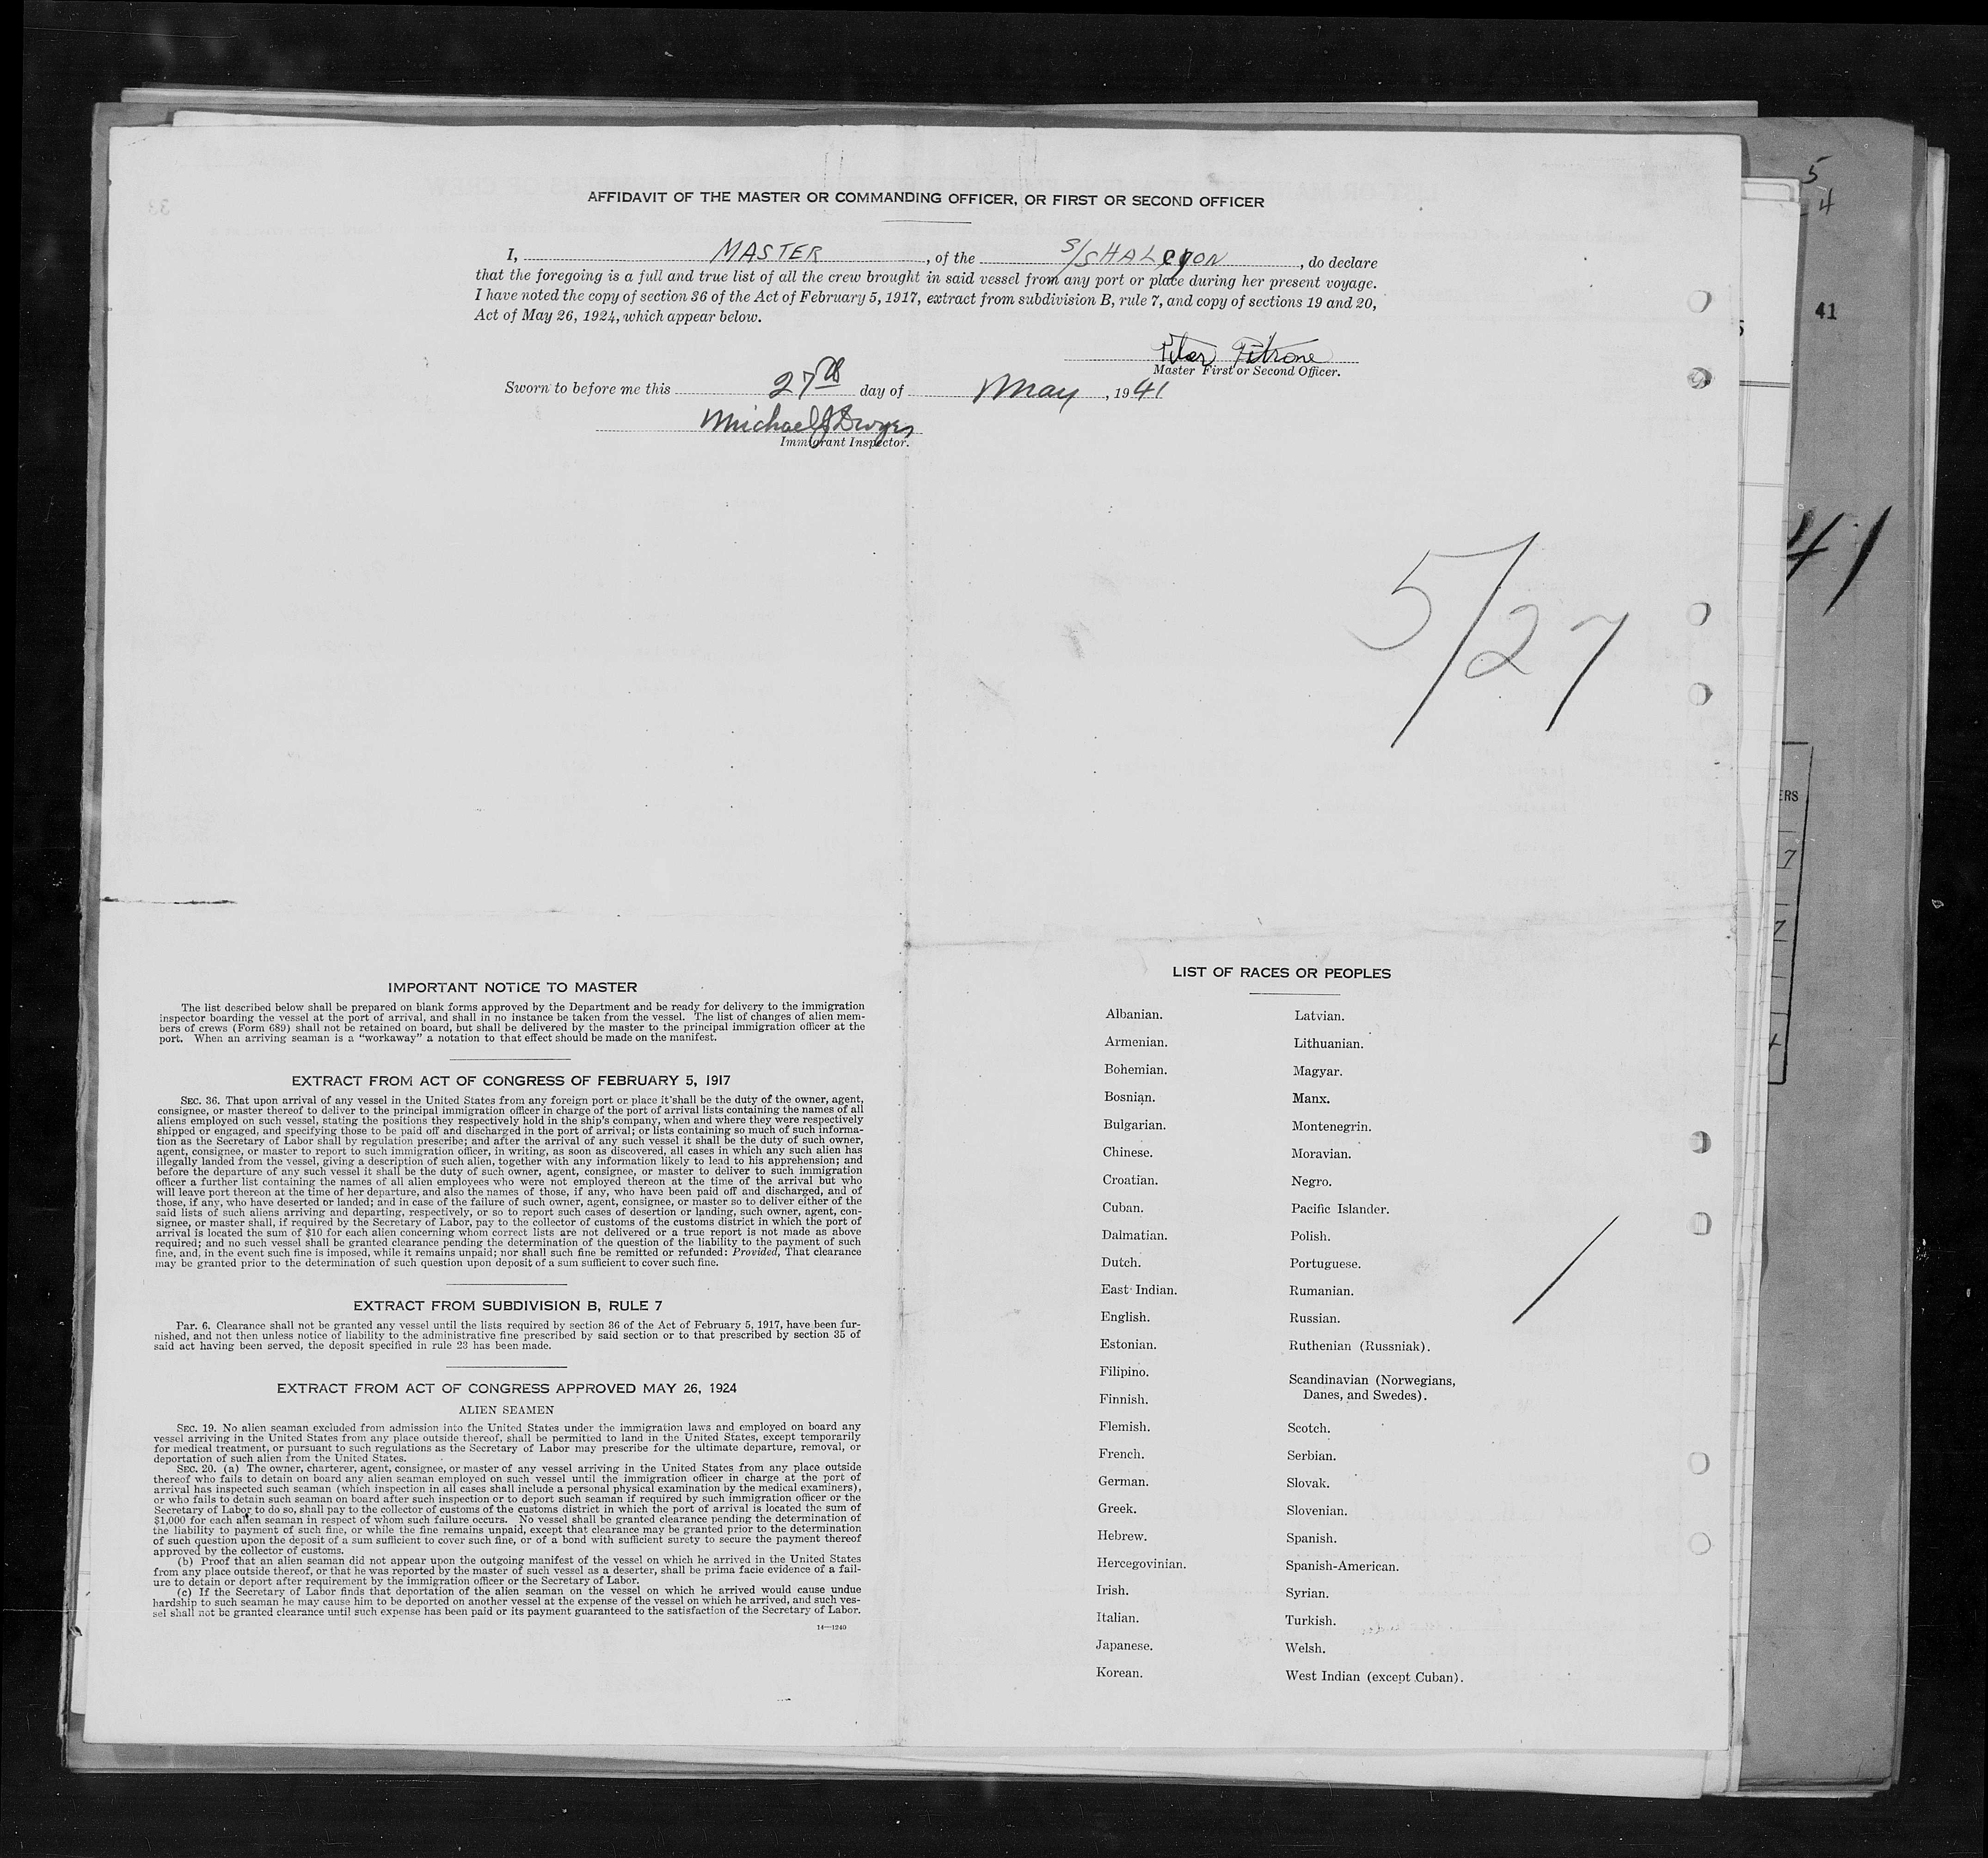 AFFIDAVIT OF THE MASTER OR COMMANDING OFFICER, OR FIRST OR SECOND OFFICER
I, MASTER, of the S/S HALCYON, do declare
that the foregoing is a full and true list of all the crew brought in said vessel from any port or place during her present voyage.
I have noted the copy of section 36 of the Act of February 5, 1917, extract from subdivision B, rule 7, and copy of sections 19 and 20,
Act of May 26, 1924, which appear below.
Peter Petrone
Master First or Second Officer.
Sworn to before me this 27th day of May, 1941
Michael J Dwyer
Immigrant Inspector.
5/27
IMPORTANT NOTICE TO MASTER
The list described below shall be prepared on blank forms approved by the Department and be ready for delivery to the immigration
inspector boarding the vessel at the port of arrival, and shall in no instance be taken from the vessel. The list of changes of alien mem-
bers of crews (Form 689) shall not be retained on board, but shall be delivered by the master to the principal immigration officer at the
port. When an arriving seaman is a "workaway" a notation to that effect should be made on the manifest.
EXTRACT FROM ACT OF CONGRESS OF FEBRUARY 5, 1917
SEC. 36. That upon arrival of any vessel in the United States from any foreign port or place it shall be the duty of the owner, agent,
consignee, or master thereof to deliver to the principal immigration officer in charge of the port of arrival lists containing the names of all
aliens employed on such vessel, stating the positions they respectively hold in the ship's company, when and where they were respectively
shipped or engaged, and specifying those to be paid off and discharged in the port of arrival; or lists containing so much of such informa-
tion as the Secretary of Labor shall by regulation prescribe; and after the arrival of any such vessel it shall be the duty of such owner,
agent, consignee, or master to report to such immigration officer, in writing, as soon as discovered, all cases in which any such alien has
illegally landed from the vessel, giving a description of such alien, together with any information likely to lead to his apprehension; and
before the departure of any such vessel it shall be the duty of such owner, agent, consignee, or master to deliver to such immigration
officer a further list containing the names of all alien employees who were not employed thereon at the time of the arrival but who
will leave port thereon at the time of her departure, and also the names of those, if any, who have been paid off and discharged, and of
those, if any, who have deserted or landed; and in case of the failure of such owner, agent, consignee, or master so to deliver either of the
said lists of such aliens arriving and departing, respectively, or so to report such cases of desertion or landing, such owner, agent, con-
signee, or master shall, if required by the Secretary of Labor, pay to the collector of customs of the customs district in which the port of
arrival is located the sum of $10 for each alien concerning whom correct lists are not delivered or a true report is not made as above
required; and no such vessel shall be granted clearance pending the determination of the question of the liability to the payment of such
fine, and, in the event such fine is imposed, while it remains unpaid; nor shall such fine be remitted or refunded: Provided, That clearance
may be granted prior to the determination of such question upon deposit of a sum sufficient to cover such fine.
EXTRACT FROM SUBDIVISION B, RULE 7
Par. 6. Clearance shall not be granted any vessel until the lists required by section 36 of the Act of February 5, 1917, have been fur-
nished, and not then unless notice of liability to the administrative fine prescribed by said section or to that prescribed by section 35 of
said act having been served, the deposit specified in rule 23 has been made.
EXTRACT FROM ACT OF CONGRESS APPROVED MAY 26, 1924
ALIEN SEAMEN
SEC. 19. No alien seaman excluded from admission into the United States under the immigration laws and employed on board any
vessel arriving in the United States from any place outside thereof, shall be permitted to land in the United States, except temporarily
for medical treatment, or pursuant to such regulations as the Secretary of Labor may prescribe for the ultimate departure, removal, or
deportation of such alien from the United States.
SEC. 20. (a) The owner, charterer, agent, consignee, or master of any vessel arriving in the United States from any place outside
thereof who fails to detain on board any alien seaman employed on such vessel until the immigration officer in charge at the port of
arrival has inspected such seaman (which inspection in all cases shall include a personal physical examination by the medical examiners),
or who fails to detain such seaman on board after such inspection or to deport such seaman if required by such immigration officer or the
Secretary of Labor to do so, shall pay to the collector of customs of the customs district in which the port of arrival is located the sum of
$1,000 for each alien seaman in respect of whom such failure occurs. No vessel shall be granted clearance pending the determination of
the liability to payment of such fine, or while the fine remains unpaid, except that clearance may be granted prior to the determination
of such question upon the deposit of a sum sufficient to cover such fine, or of a bond with sufficient surety to secure the payment thereof
approved by the collector of customs.
(b) Proof that an alien seaman did not appear upon the outgoing manifest of the vessel on which he arrived in the United States
from any place outside thereof, or that he was reported by the master of such vessel as a deserter, shall be prima facie evidence of a fail-
ure to detain or deport after requirement by the immigration officer or the Secretary of Labor.
(c) If the Secretary of Labor finds that deportation of the alien seaman on the vessel on which he arrived would cause undue
hardship to such seaman he may cause him to be deported on another vessel at the expense of the vessel on which he arrived, and such ves-
sel shall not be granted clearance until such expense has been paid or its payment guaranteed to the satisfaction of the Secretary of Labor.
14—1240
LIST OF RACES OR PEOPLES
Albanian.
Armenian.
Bohemian.
Bosnian.
Bulgarian.
Chinese.
Croatian.
Cuban.
Dalmatian.
Dutch.
East Indian.
English.
Estonian.
Filipino.
Finnish.
Flemish.
French.
German.
Greek.
Hebrew.
Hercegovinian.
Irish.
Italian.
Japanese.
Korean.
Latvian.
Lithuanian.
Magyar.
Manx.
Montenegrin.
Moravian.
Negro.
Pacific Islander.
Polish.
Portuguese.
Rumanian.
Russian.
Ruthenian (Russniak).
Scandinavian (Norwegians,
Danes, and Swedes).
Scotch.
Serbian.
Slovak.
Slovenian.
Spanish.
Spanish-American.
Syrian.
Turkish.
Welsh.
West Indian (except Cuban).
5
4
41
41
ERS
7
7